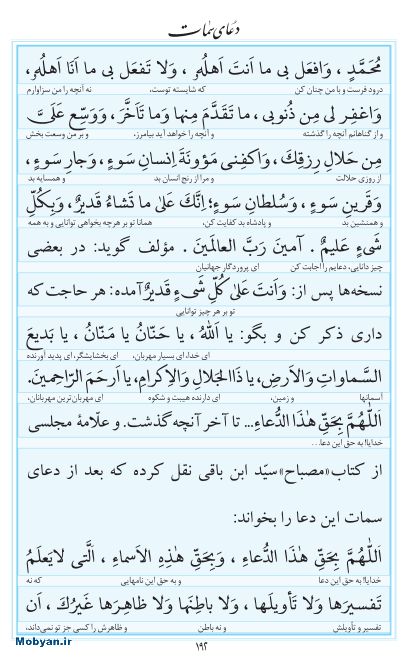 دعای سمات
مُحَمَّدٍ ، وَافعَل بی ما اَنتَ اَهلُهُ ، وَلا تَفعَل بی ما اَنَا اَهلُهُ،
درود فرست و با من چنان کن که شایسته توست، نه آنچه را من سزاوارم
وَاغفِر لی مِن ذُنوبی ، ما تَقَدَّمَ مِنها وَما تَأَخَّرَ ، وَوَسِّع عَلَیَّ
و از گناهانم آنچه را گذشته و آنچه را خواهد آید بیامرز، و بر من وسعت بخش
مِن حَلالِ رِزقِكَ، وَاکفِنی مَؤونَةَ اِنسانِ سَوءٍ، وَجارِ سَوءٍ،
از روزی حلالت و مرا از رنج انسان بد و همسایه بد
وَقَرینِ سَوءٍ ، وَسُلطانِ سَوءٍ؛ اِنَّكَ عَلیٰ ما تَشاءُ قَدیرٌ، وَبِکُلِّ
و همنشین بد و پادشاه بد کفایت کن، همانا تو بر هرچه بخواهی توانایی و به همه
شَیءٍ عَلیمٌ . آمینَ رَبَّ العالَمینَ . مؤلف گوید: در بعضی
چیز دانایی، دعایم را اجابت کن ای پروردگار جهانیان
نسخه‌ها پس از: وَاَنتَ عَلیٰ کُلِّ شَیءٍ قَدیرٌ آمده: هر حاجت که
تو بر هر چیز توانایی
داری ذکر کن و بگو: یا اَللّٰهُ ، یا حَنّانُ یا مَنّانُ ، یا بَدیعَ
ای خدا، ای بسیار مهربان، ای بخشایشگر، ای پدید آورنده
السَّماواتِ وَالاَرضِ، یا ذَا الجَلالِ وَالاِکرامِ، یا اَرحَمَ الرّاحِمینَ.
آسمانها و زمین، ای دارنده هیبت و شکوه ای مهربان‌ترین مهربانان،
اَللّٰهُمَّ بِحَقِّ هٰذَا الدُّعاءِ... تا آخر آنچه گذشت. و علّامهٔ مجلسی
خدایا! به حق این دعا...
از کتاب «مصباح» سیّد ابن باقی نقل کرده که بعد از دعای
سمات این دعا را بخواند:
اَللّٰهُمَّ بِحَقِّ هٰذَا الدُّعاءِ ، وَبِحَقِّ هٰذِهِ الاَسماءِ ، اَلَّتی لایَعلَمُ
خدایا! به حق این دعا و به حق این نامهایی که نه
تَفسیرَها وَلا تَأویلَها ، وَلا باطِنَها وَلا ظاهِرَها غَیرُكَ ، اَن
تفسیر و تأویلش و نه باطن و ظاهرش را کسی جز تو نمی‌داند،
۱۹۲
Mobyan.ir